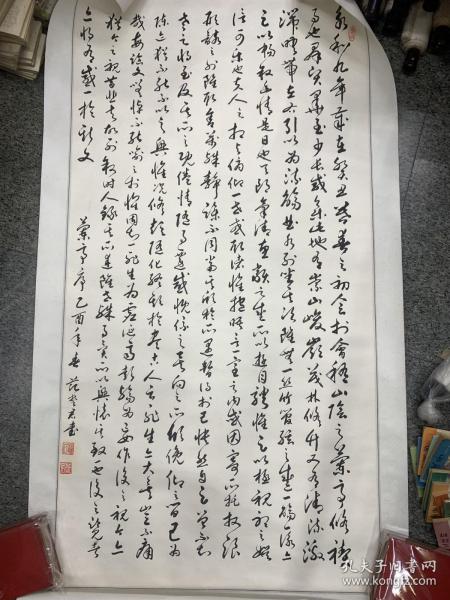 永和九年歲在癸丑暮春之初會於會稽山陰之蘭亭修禊
事也群賢畢至少長咸集此地有崇山峻嶺茂林修竹又有清流激
湍映帶左右引以為流觴曲水列坐其次雖無絲竹管弦之盛一觴一詠亦
足以暢敘幽情是日也天朗氣清惠類之盛所以遊目騁懷足以極視聽之娛
信可樂也夫人之相與俯仰一世或取諸懷抱悟言一室之內或因寄所託放浪
形骸之外雖取舍萬殊靜躁不同當其欣於所遇暫得於己快然自足曾不知
老之將至及其所之既倦情隨事遷感慨係之矣向之所欣俛仰之間已為
陳迹猶不能不以之興懷況修短隨化終期於盡古人云死生亦大矣豈不痛
哉每文嗟悼不能喻之於懷固知一死生為虛誕齊彭殤為妄作後之視今亦
猶今之視昔悲夫故列敘時人錄其所述雖世殊事異所以興懷其致一也後之覽者
亦將有感於斯文
蘭亭序乙酉年春范書
孔夫子旧书网